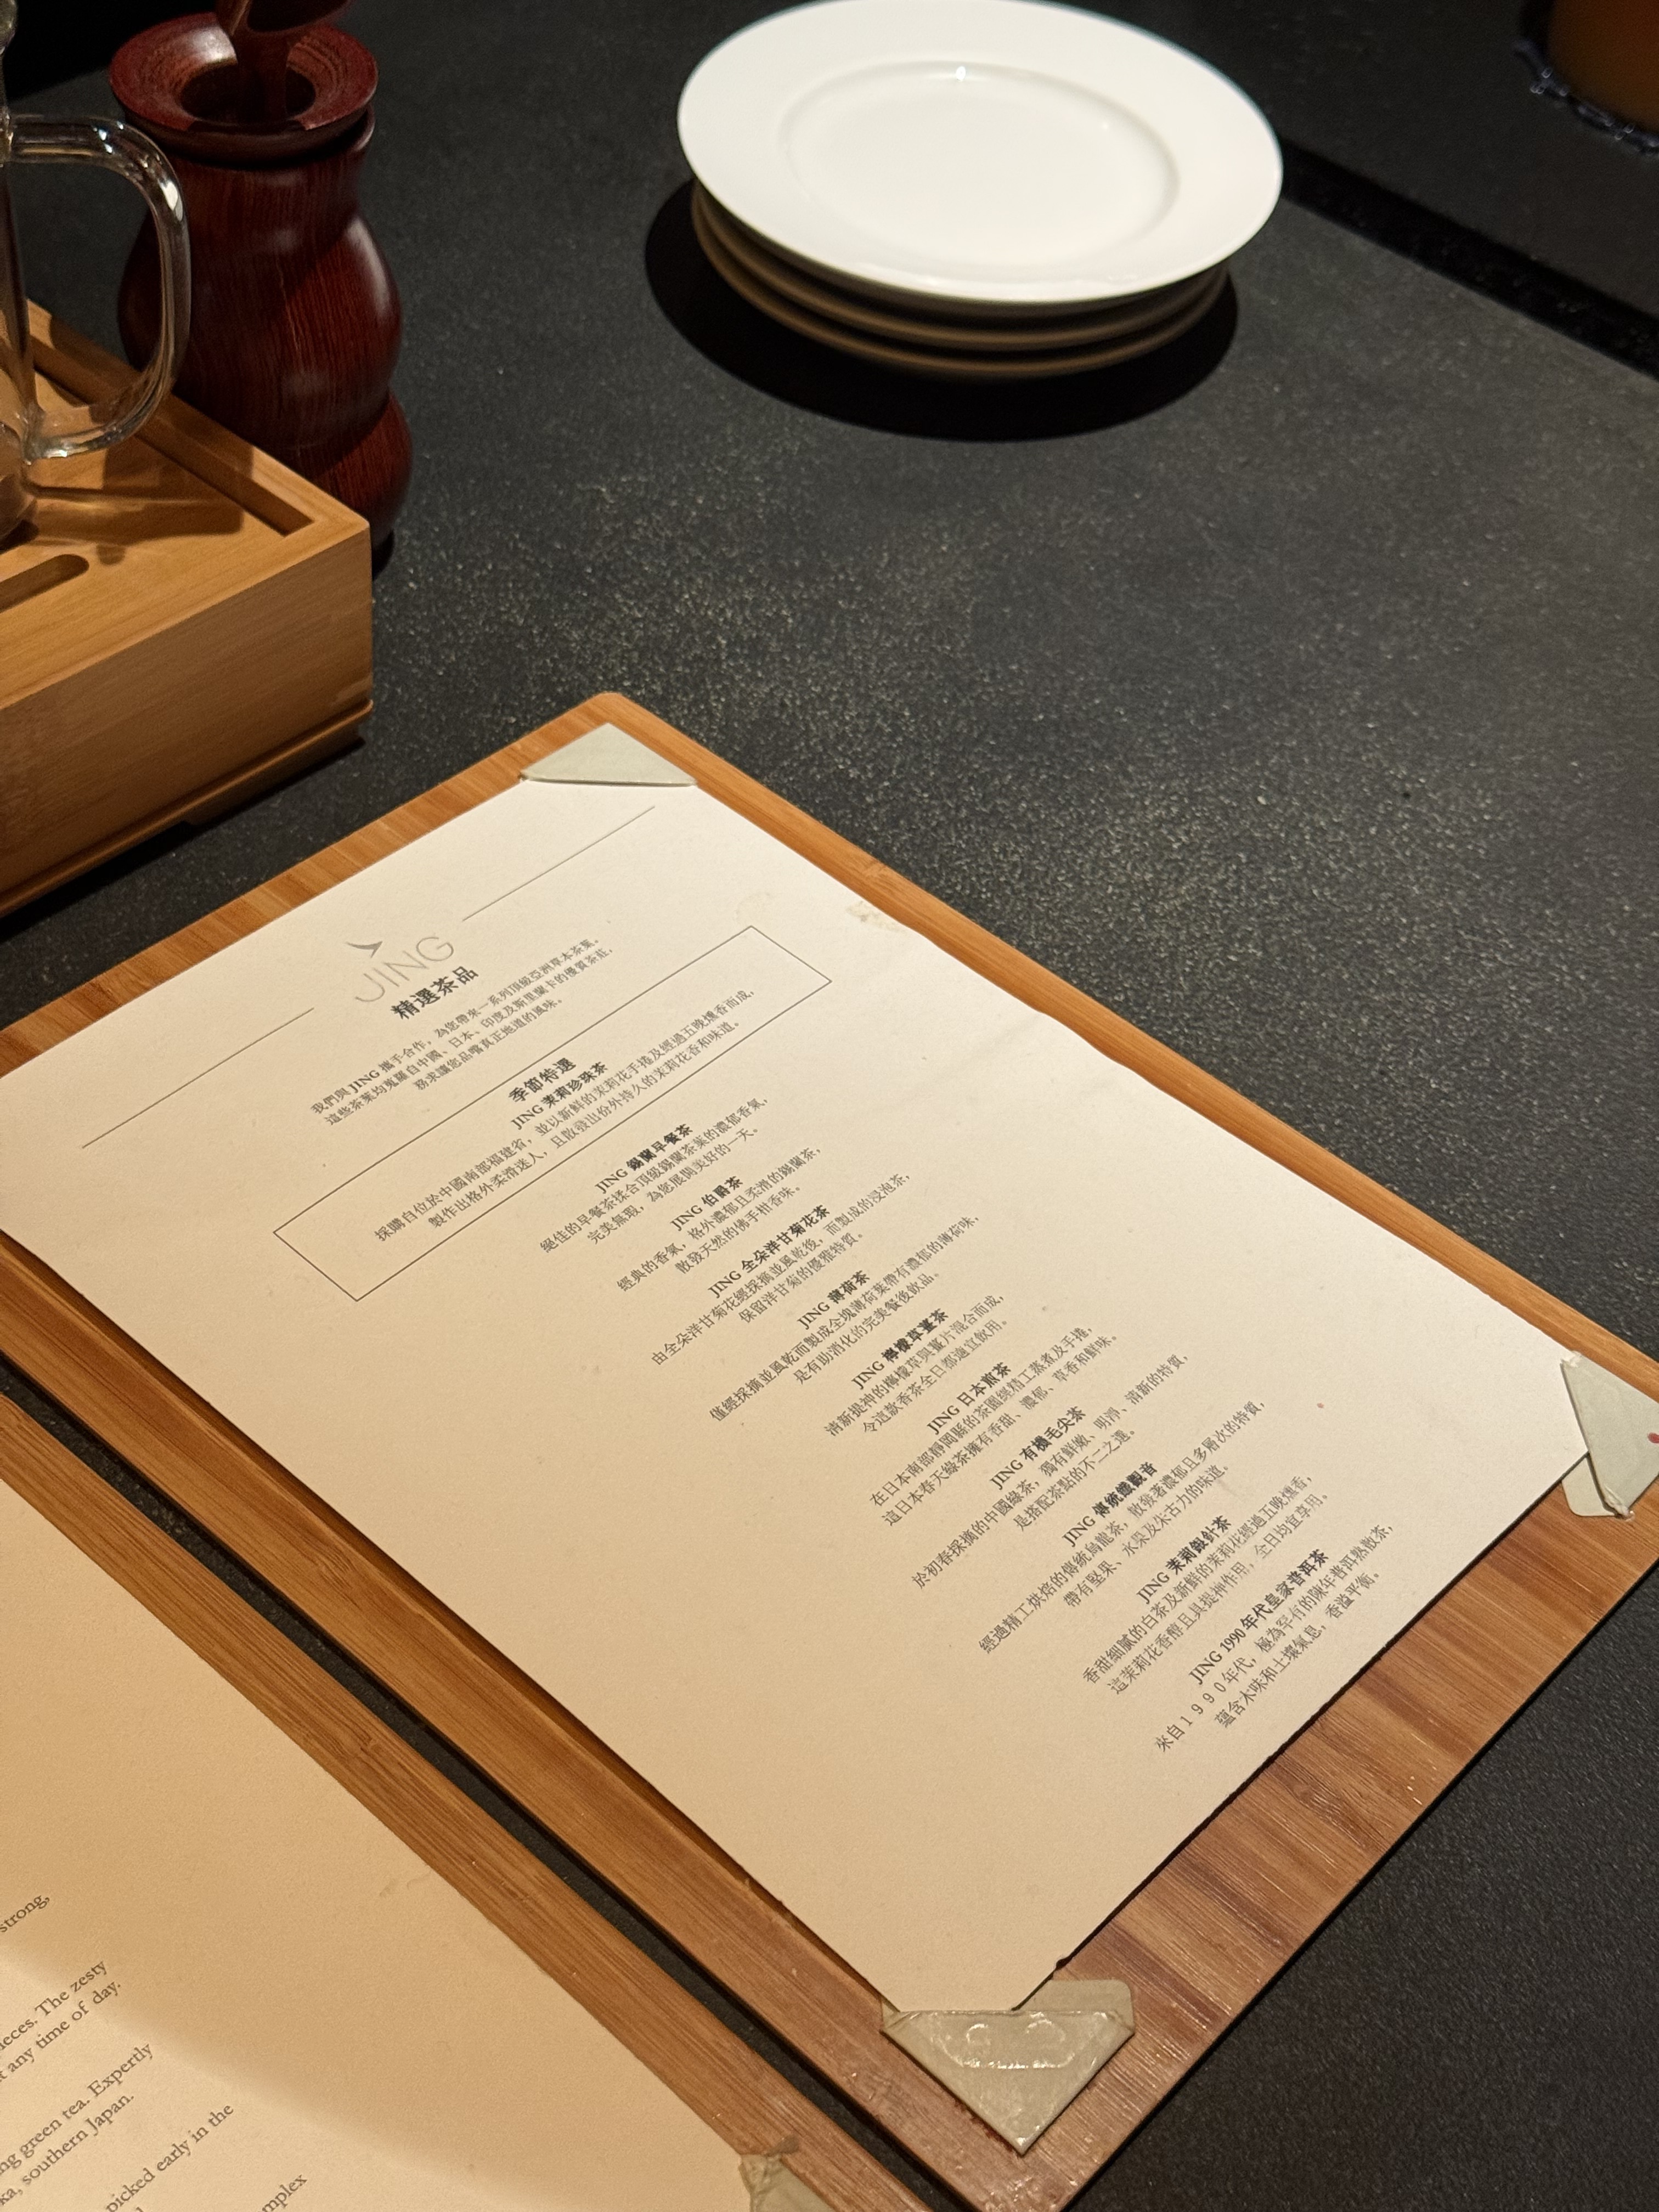 JING
精選茶品
我們與 JING 攜手合作，為您帶來一系列頂級亞洲草本茶葉。
這些茶葉均蒐羅自中國、日本、印度及斯里蘭卡的優質茶莊，
務求讓您品嚐真正地道的風味。
季節特選
JING 茉莉珍珠茶
採購自位於中國南部福建省，並以新鮮的茉莉花手捲及經過五晚燻香而成，
製作出格外柔滑迷人，且散發出份外持久的茉莉花香和味道。
JING 錫蘭早餐茶
絕佳的早餐茶揉合頂級錫蘭茶葉的濃郁香氣，
完美無瑕，為您展開美好的一天。
JING 伯爵茶
經典的香氣，格外濃郁且柔滑的錫蘭茶，
散發天然的佛手柑香味。
JING 全朵洋甘菊花茶
由全朵洋甘菊花經採摘並風乾後，而製成的浸泡茶，
保留洋甘菊的優雅特質。
JING 薄荷茶
僅經採摘並風乾而製成全塊薄荷葉帶有濃郁的薄荷味，
是有助消化的完美餐後飲品。
JING 檸檬草薑茶
清新提神的檸檬草與薑片混合而成，
令這款香茶全日都適宜飲用。
JING 日本煎茶
在日本南部靜岡縣的茶園經精工蒸煮及手捲，
這日本春天綠茶擁有香甜、濃郁、草香和鮮味。
JING 有機毛尖茶
於初春採摘的中國綠茶，獨有鮮嫩、明淨、清新的特質，
是搭配茶點的不二之選。
JING 傳統鐵觀音
經過精工烘焙的傳統烏龍茶，散發著濃郁且多層次的特質，
帶有堅果、水果及朱古力的味道。
JING 茉莉銀針茶
香甜細膩的白茶及新鮮的茉莉花經過五晚燻香，
這茉莉花香醇且具提神作用，全日均宜享用。
JING 1990 年代皇家普洱茶
來自1990年代，極為罕有的陳年普洱熟散茶，
蘊含木味和土壤氣息，香溢平衡。
strong,
ieces. The zesty
t any time of day.
ng green tea. Expertly
ka, southern Japan.
picked early in the
mplex